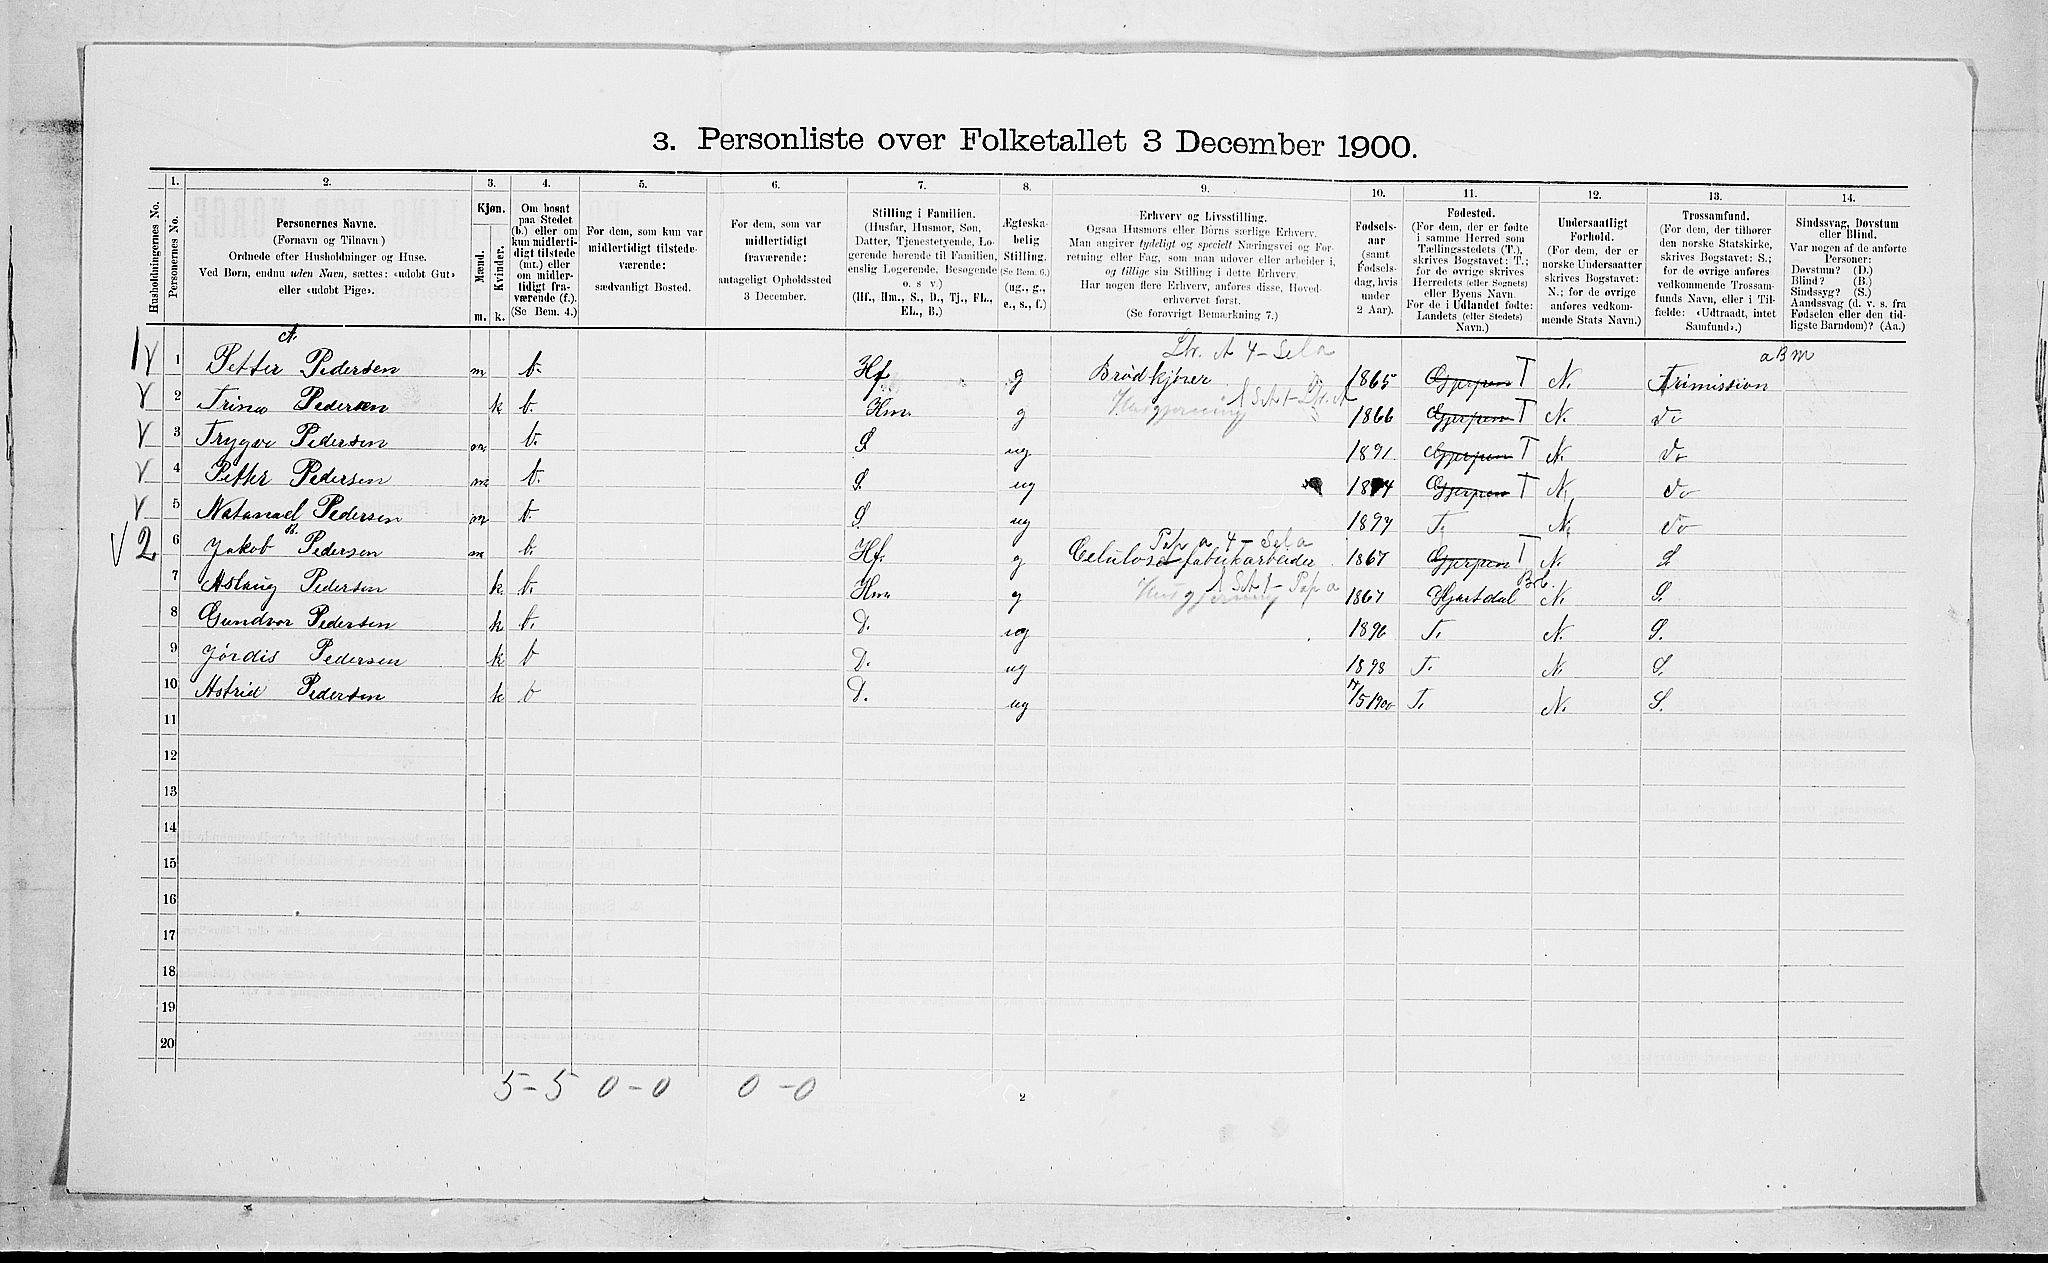 3. Personliste over Folketallet 3 December 1900.
1. 2. 3. 4. 5. 6. 7. 8. 9. 10. 11. 12. 13. 14.
Husholdningernes No.
Personernes No.
Personernes Navne.
(Fornavn og Tilnavn)
Ordnede efter Husholdninger og Huse.
Ved Børn, endnu uden Navn, sættes: «udøbt Gut»
eller «udøbt Pige».
Kjøn.
Mænd.
Kvinder.
m. k.
Om bosat
paa Stedet
(b.) eller om
kun midlerti-
digt tilstede
(mt.) eller
om midler-
tidigt fra-
værende (f.).
(Se Bem. 4.)
For dem, som kun var
midlertidigt tilstede-
værende:
sædvanligt Bosted.
For dem, som var
midlertidigt
fraværende:
antageligt Opholdssted
3 December.
Stilling i Familien.
(Husfar, Husmor, Søn,
Datter, Tjenestetyende, Lo-
gerende hørende til Familien,
enslig Logerende, Besøgende
o. s. v.)
(Hf., Hm., S., D., Tj., FL.,
EL., B.)
Ægteska-
belig
Stilling.
(Se Bem. 6.)
(ug., g.,
e., s., f.)
Erhverv og Livsstilling.
Ogsaa Husmors eller Børns særlige Erhverv.
Man angiver tydeligt og specielt Næringsvei og For-
retning eller Fag, som man udover eller arbeider i,
og tillige sin Stilling i dette Erhverv.
Har nogen flere Erhverv, anføres disse, Hoved-
erhvervet først.
(Se forøvrigt Bemærkning 7.)
Fødsels-
aar
(samt
Fødsels-
dag, hvis
under
2 Aar).
Fødested.
(For dem, der er fødte
i samme Herred som
Tællingsstedets (T.),
skrives Bogstavet: T.;
for de øvrige skrives
Herredets (eller Sognets)
eller Byens Navn.
For de i Udlandet fødte:
Landets (eller Stedets)
Navn.)
Undersaatligt
Forhold.
(For dem, der er
norske Undersaatter
skrives Bogstavet:
N.; for de øvrige
anføres vedkom-
mende Stats Navn.)
Trossamfund.
(For dem, der tilhører
den norske Statskirke,
skrives Bogstavet: S.;
for de øvrige anføres
vedkommende Trossam-
funds Navn, eller i Til-
fælde: «Udtraadt, intet
Samfund».)
Sindssvag, Døvstum
eller Blind.
Var nogen af de anførte
Personer:
Døvstum? (D.)
Blind? (B.)
Sindssyg? (S.)
Aandssvag (d. v. s. fra
Fødselen eller den tid-
ligste Barndom)? (Aa.)
A. Ltr. A 4 - Sela aBM
1 1 Petter Pedersen m b. Hf g Brødkjører 1865 Gjerpen T N. Frimission
2 Trina Pedersen k b. Hm. g Husgjerning 1866 Gjerpen T N. do
3 Trygve Pedersen m b. S. ug 1891 Gjerpen T N. do
4 Petter Pedersen m b. S. ug 1894 Gjerpen T N. do
5 Natanael Pedersen m b. S. ug 1897 T. N. do
Pap a 4 - Sela
2 6 Jakob Pedersen m b. Hf. g Celulosefabrikarbeider 1867 Gjerpen T N. S
7 Aslaug Pedersen k b. Hm g Husgjerning 1867 Hjartdal Brb. N. S.
8 Gundvor Pedersen k b. D. ug 1896 T. N. S.
9 Jørdis Pedersen k b D. ug 1898 T. N. S.
10 Astrid Pedersen k b D. ug 17/5 1900 T. N. S.
11
12
13
14
15
16
17
18
19
20
5 - 5 0 - 0 0 - 0
2